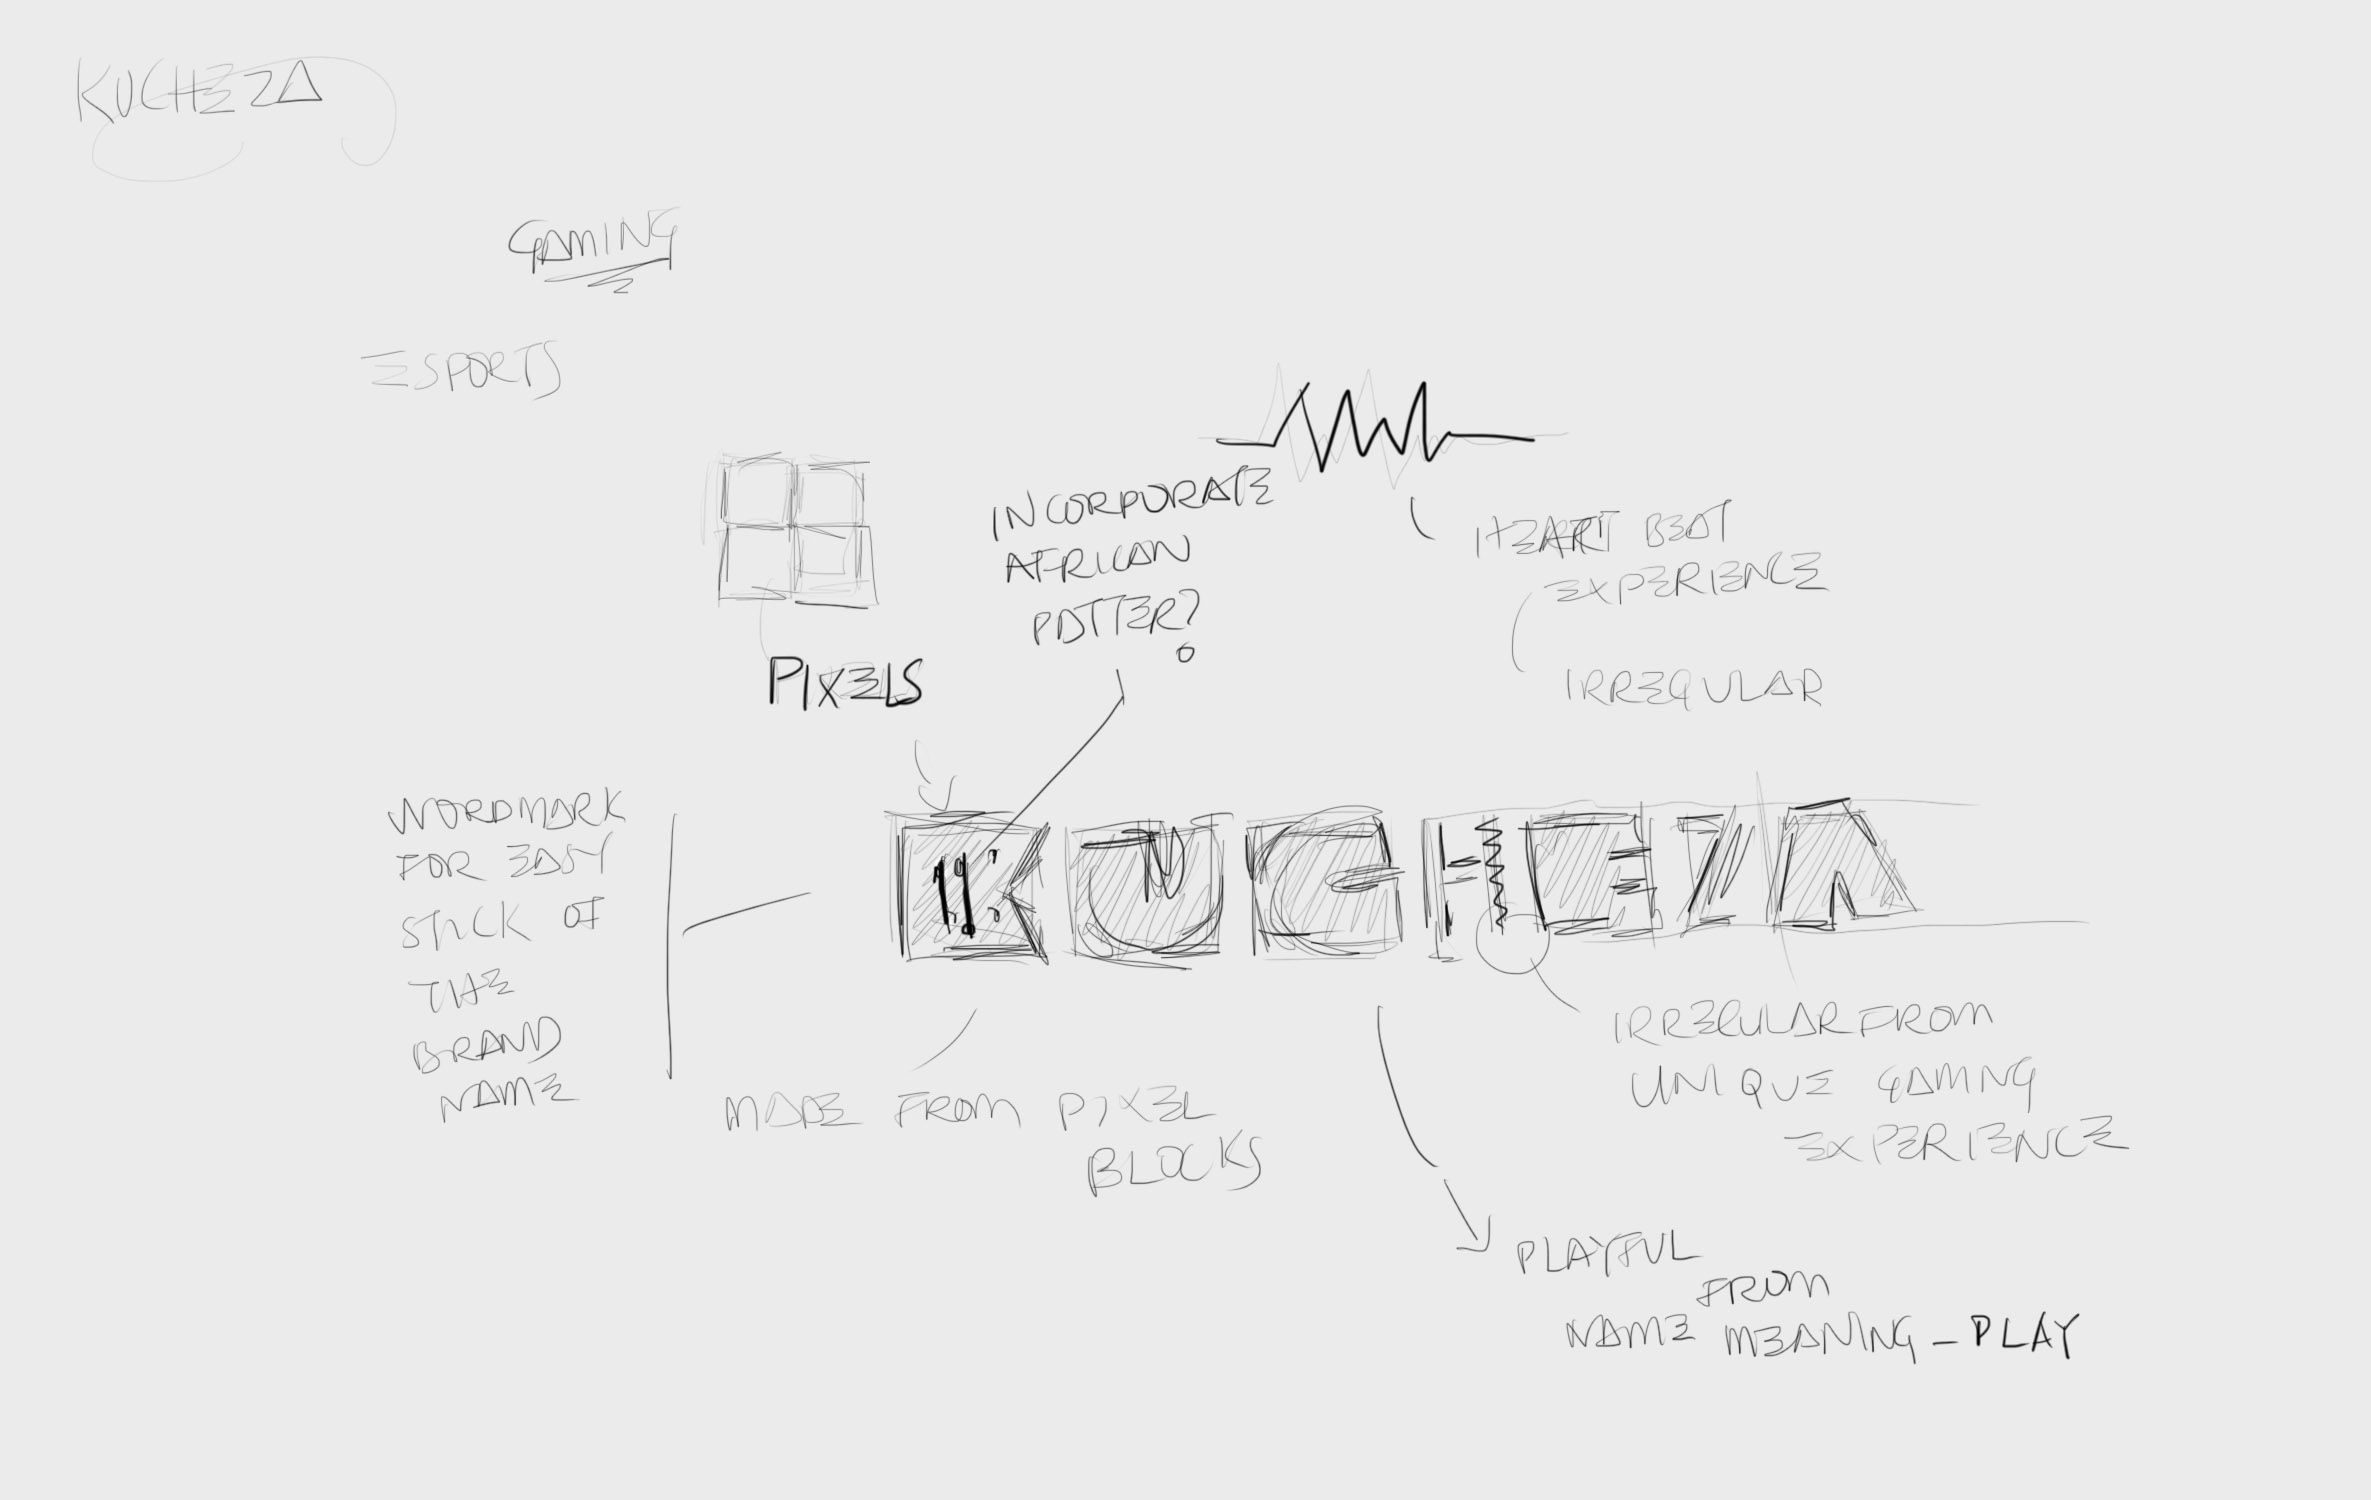 KUCHEZA
GAMING
ESPORTS
INCORPORATE
AFRICAN
PATTER?
HEART BEAT
EXPERIENCE
IRREGULAR
PIXELS
WORDMARK
FOR EASY
STICK OF
THE
BRAND
NAME
KUCHEZA
MADE FROM PIXEL
BLOCKS
IRREGULAR FROM
UNIQUE GAMING
EXPERIENCE
PLAYFUL
FROM
NAME MEANING - PLAY